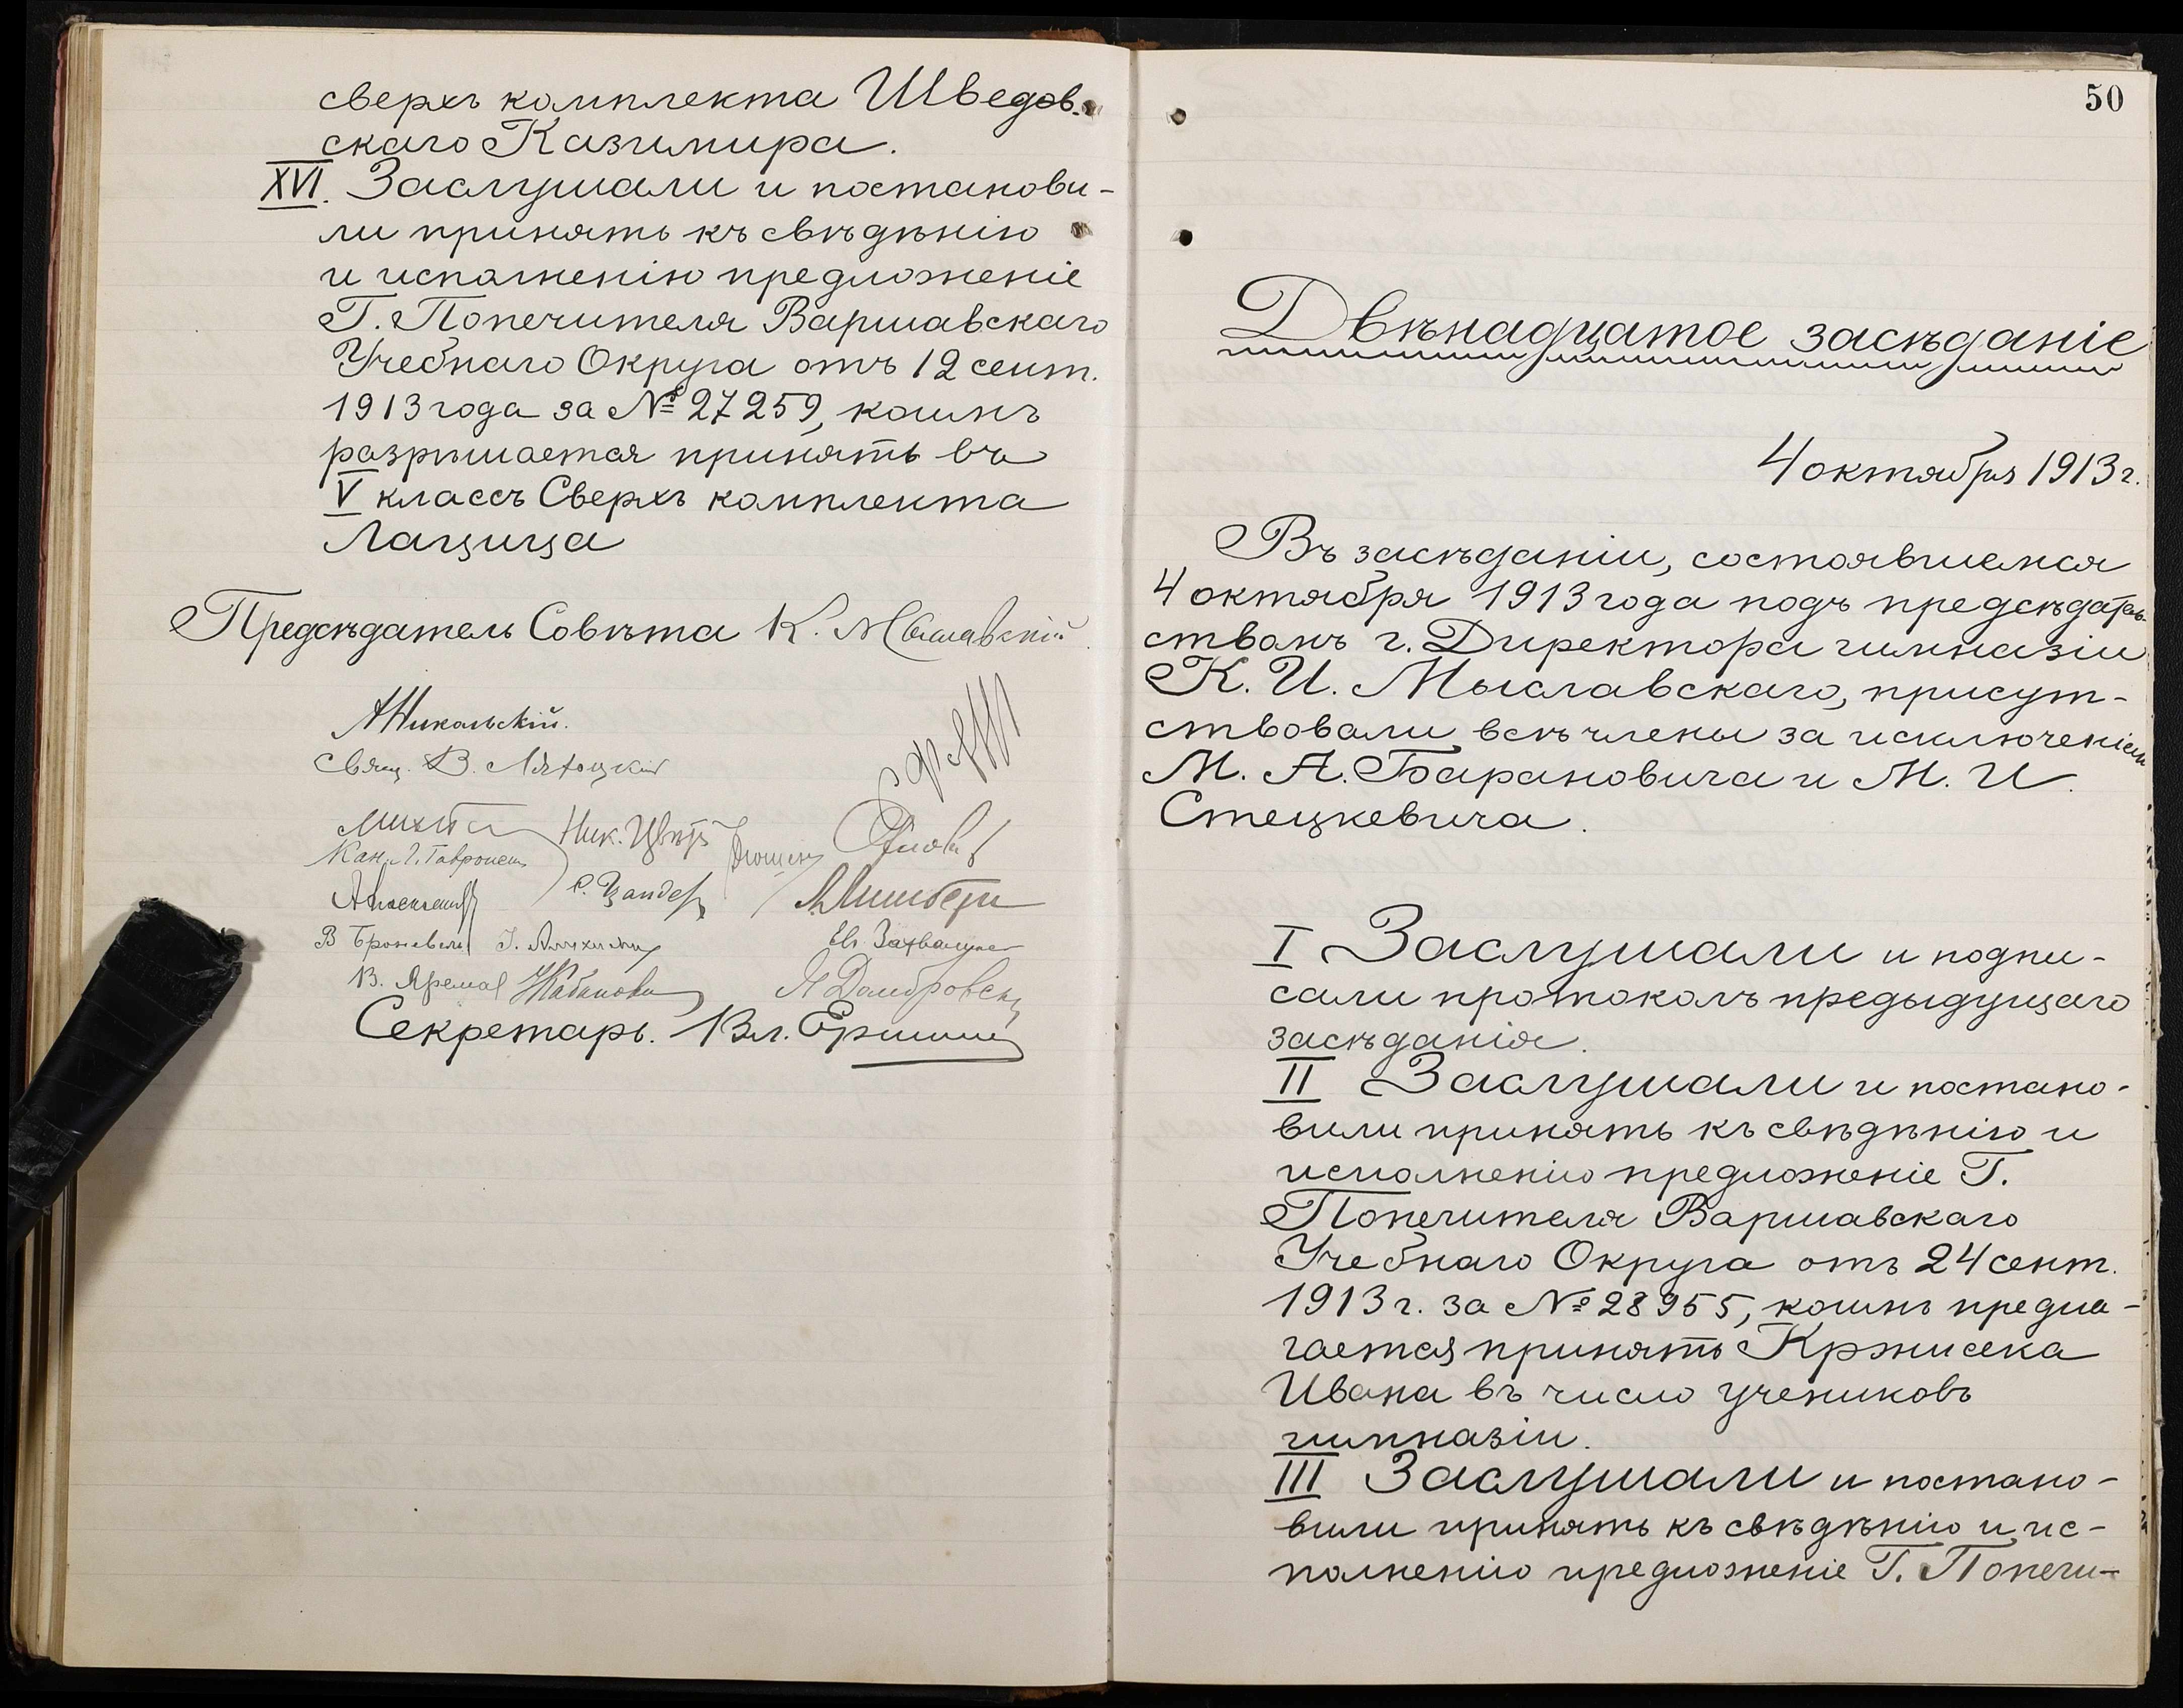 сверхъ комплекта Шведов-
скаго Казимира.
XVI. Заслушали и постанови-
ли принять къ свѣдѣнію
и исполненію предложеніе
Г. Попечителя Варшавскаго
Учебнаго Округа отъ 12 сент.
1913 года за № 27259, коимъ
разрѣшается принять въ
V классъ Сверхъ комплекта
Лащица
Предсѣдатель Совѣта К. Мыславскій
А Никольскій.
Свящ. В.
Ник.
Кан. Л.
С. Цандер
В Броневск
Ев.
В. Ярема
Я Домбровск
Секретарь. Вл. Ершин
50
Двѣнадцатое засѣданіе
4 октября 1913 г.
Въ засѣданіи, состоявшемся
4 октября 1913 года подъ предсѣдатель-
ствомъ г. Директора гимназіи
К. И. Мыславскаго, присут-
ствовали всѣ члены за исключеніемъ
М. А. Барановича и М. И.
Стецкевича.
I Заслушали и подпи-
сали протоколъ предыдущаго
засѣданія.
II Заслушали и постано-
вили принять къ свѣдѣнію и
исполненію предложеніе Г.
Попечителя Варшавскаго
Учебнаго Округа отъ 24 сент.
1913 г. за № 28955, коимъ предла-
гается принять Кржисека
Ивана въ число учениковъ
гимназіи.
III Заслушали и постано-
вили принять къ свѣдѣнію и ис-
полненію предложеніе Г. Попечи-